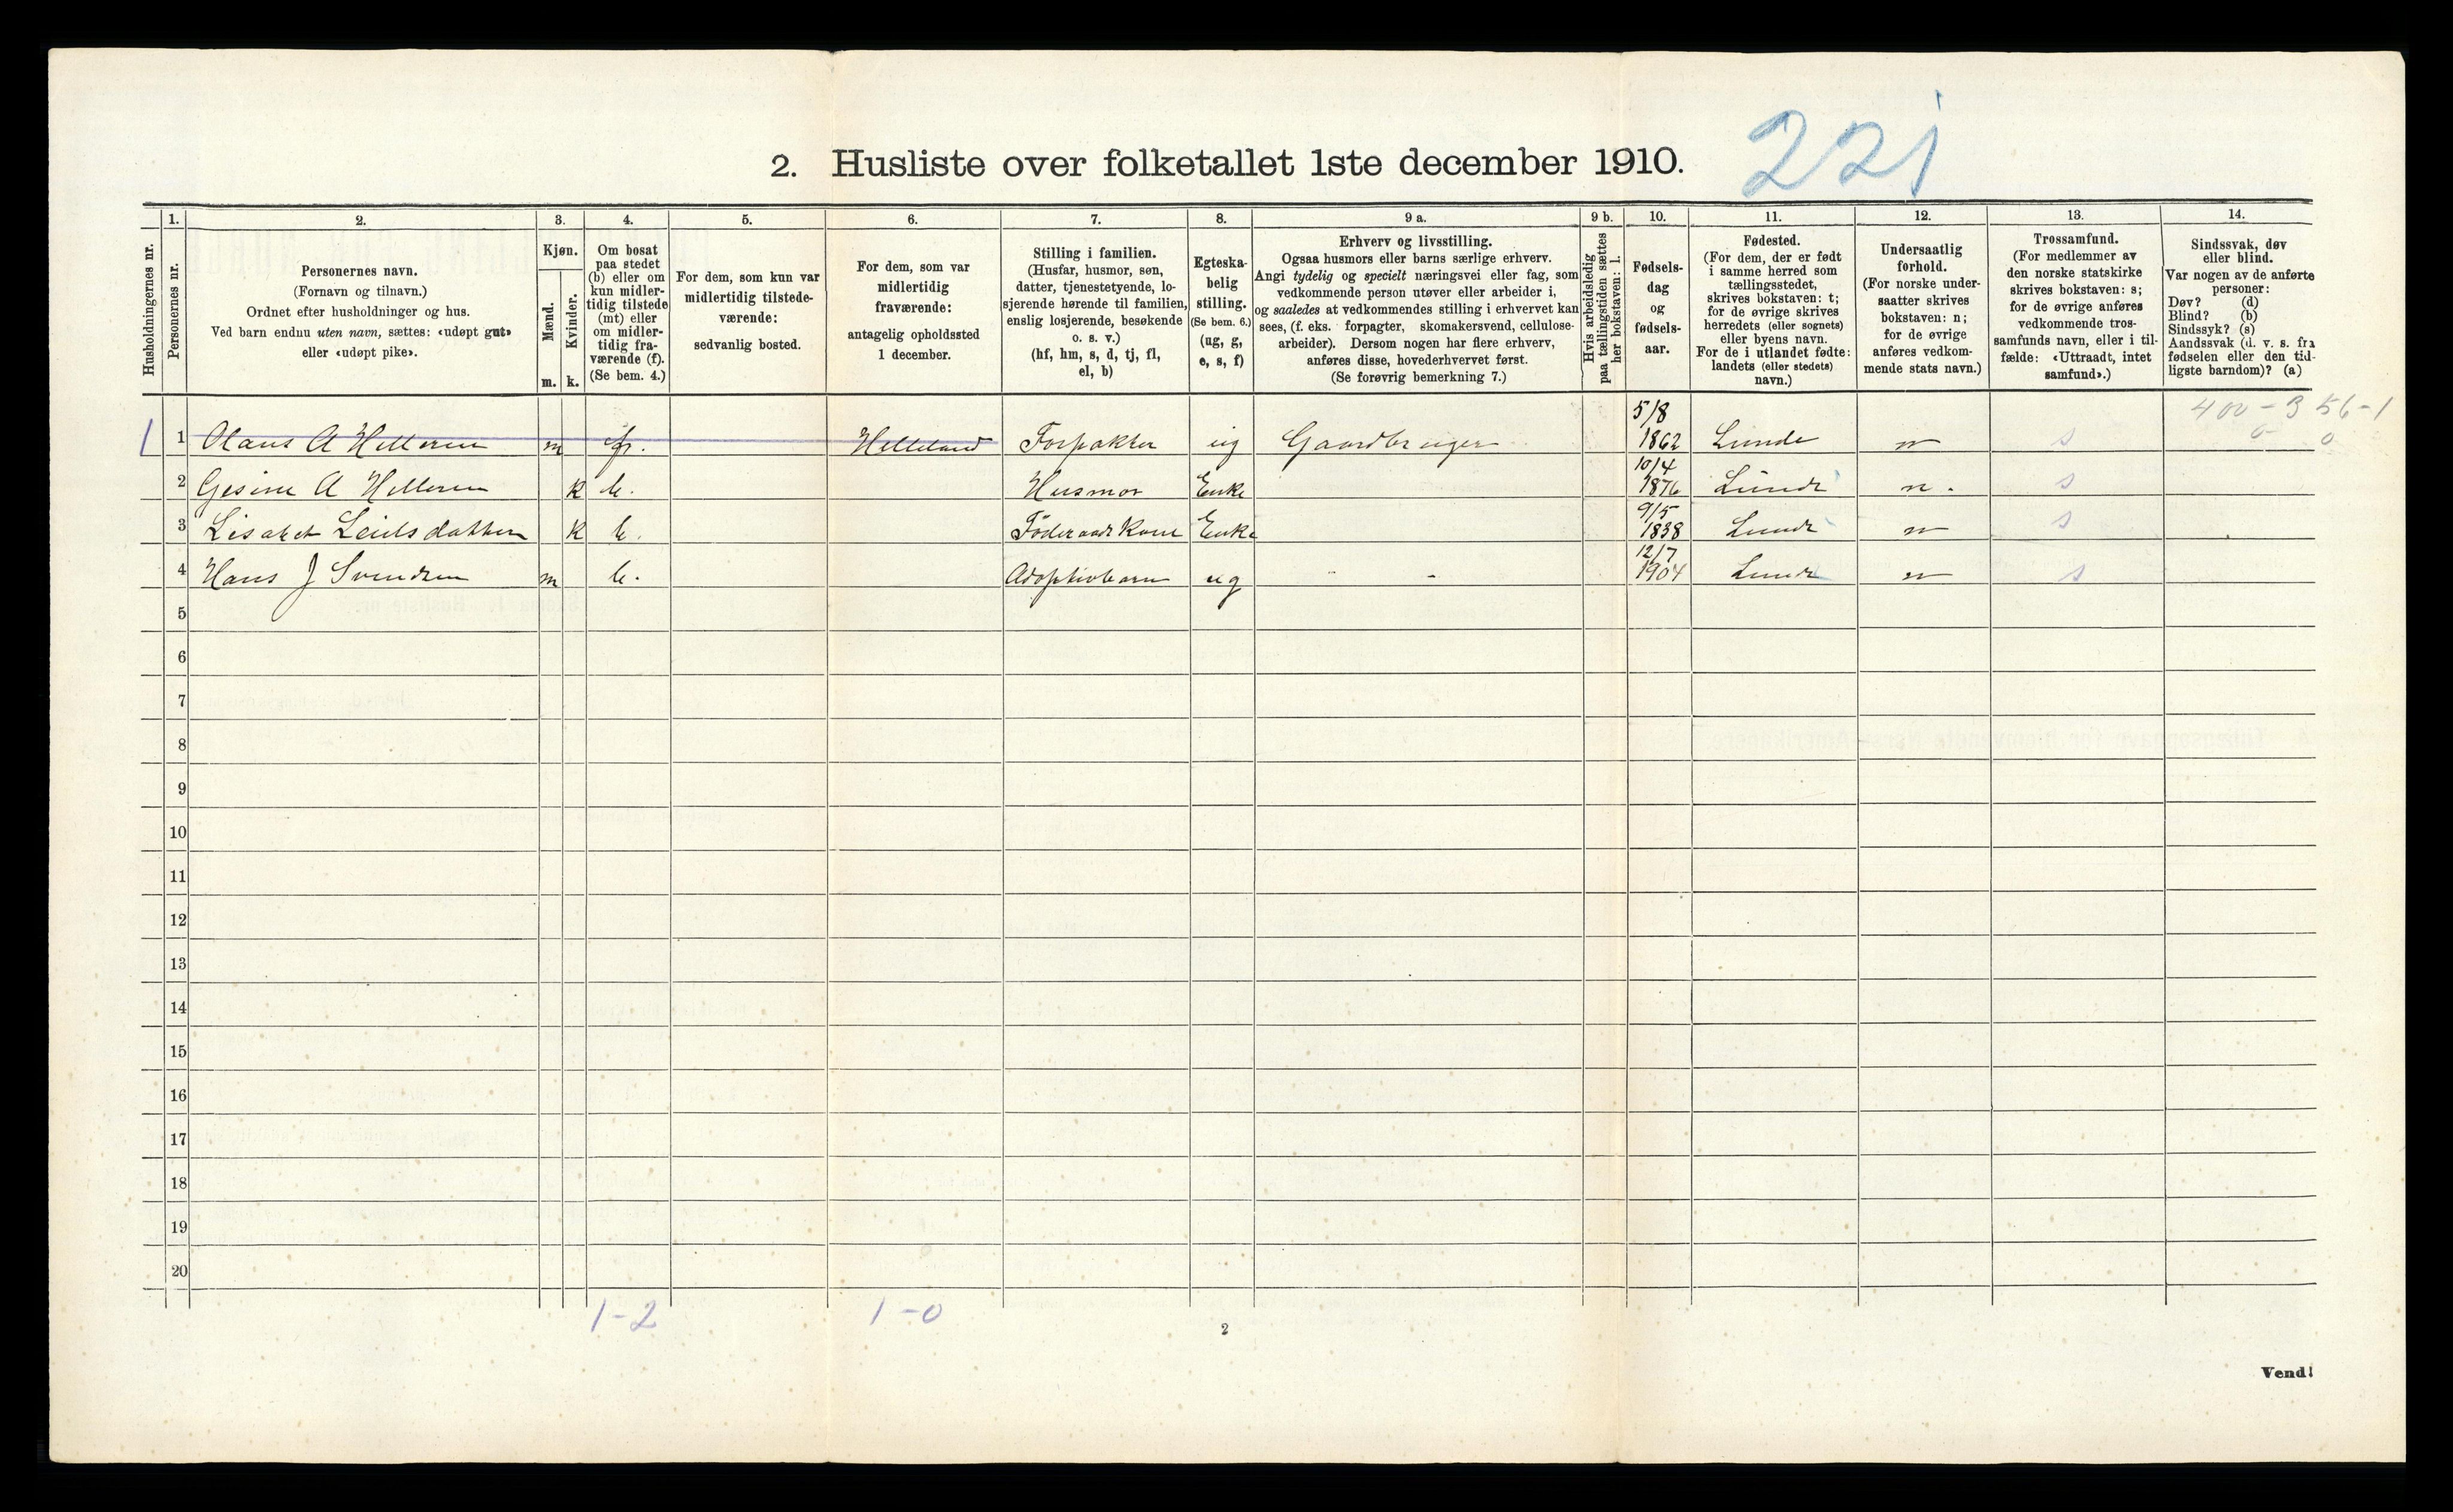 221
2. Husliste over folketallet 1ste december 1910.
1. 2. 3. 4. 5. 6. 7. 8. 9 a. 9 b. 10. 11. 12. 13. 14.
Husholdningernes nr.
Personernes nr.
Personernes navn.
(Fornavn og tilnavn.)
Ordnet efter husholdninger og hus.
Ved barn endnu uten navn, sættes: «udøpt gut»
eller «udøpt pike».
Kjøn.
Mænd.
Kvinder.
m. k.
Om bosat
paa stedet
(b) eller om
kun midler-
tidig tilstede
(mt) eller
om midler-
tidig fra-
værende (f).
(Se bem. 4.)
For dem, som kun var
midlertidig tilstede-
værende:
sedvanlig bosted.
For dem, som var
midlertidig
fraværende:
antagelig opholdssted
1 december.
Stilling i familien.
(Husfar, husmor, søn,
datter, tjenestetyende, lo-
sjerende hørende til familien,
enslig losjerende, besøkende
o. s. v.)
(hf, hm, s, d, tj, fl,
el, b)
Egteska-
belig
stilling.
(Se bem. 6.)
(ug, g,
e, s, f)
Erhverv og livsstilling.
Ogsaa husmors eller barns særlige erhverv.
Angi tydelig og specielt næringsvei eller fag, som
vedkommende person utøver eller arbeider i,
og saaledes at vedkommendes stilling i erhvervet kan
sees, (f. eks. forpagter, skomakersvend, cellulose-
arbeider). Dersom nogen har flere erhverv,
anføres disse, hovederhvervet først.
(Se forøvrig bemerkning 7.)
Hvis arbeidsledig
paa tællingstiden sættes
her bokstaven: l.
Fødsels-
dag
og
fødsels-
aar.
Fødested.
(For dem, der er født
i samme herred som
tællingsstedet,
skrives bokstaven: t;
for de øvrige skrives
herredets (eller sognets)
eller byens navn.
For de i utlandet fødte:
landets (eller stedets)
navn.)
Undersaatlig
forhold.
(For norske under-
saatter skrives
bokstaven: n;
for de øvrige
anføres vedkom-
mende stats navn.)
Trossamfund.
(For medlemmer av
den norske statskirke
skrives bokstaven: s;
for de øvrige anføres
vedkommende tros-
samfunds navn, eller i til-
fælde: «Uttraadt, intet
samfund».)
Sindssvak, døv
eller blind.
Var nogen av de anførte
personer:
Døv? (d)
Blind? (b)
Sindssyk? (s)
Aandssvak (d. v. s. fra
fødselen eller den tid-
ligste barndom)? (a)
400 - 356 - 1
0 0
5/8
1 1 Olaus A Helleren m f. Helleland Forpakter ug Gaardbruger 1862 Lunde n s
10/4
2 Gesine A Helleren k b. Husmor Enke 1876 Lunde n. s
9/5
3 Lisabet Leidsdatter k b. Föderaadskone Enke 1838 Lunde n s
12/7
4 Hans J Svendsen m b. Adoptivbarn ug - - 1904 Lunde n s
5
6
7
8
9
10
11
12
13
14
15
16
17
18
19
20
1-2 1-0
2
Vend!